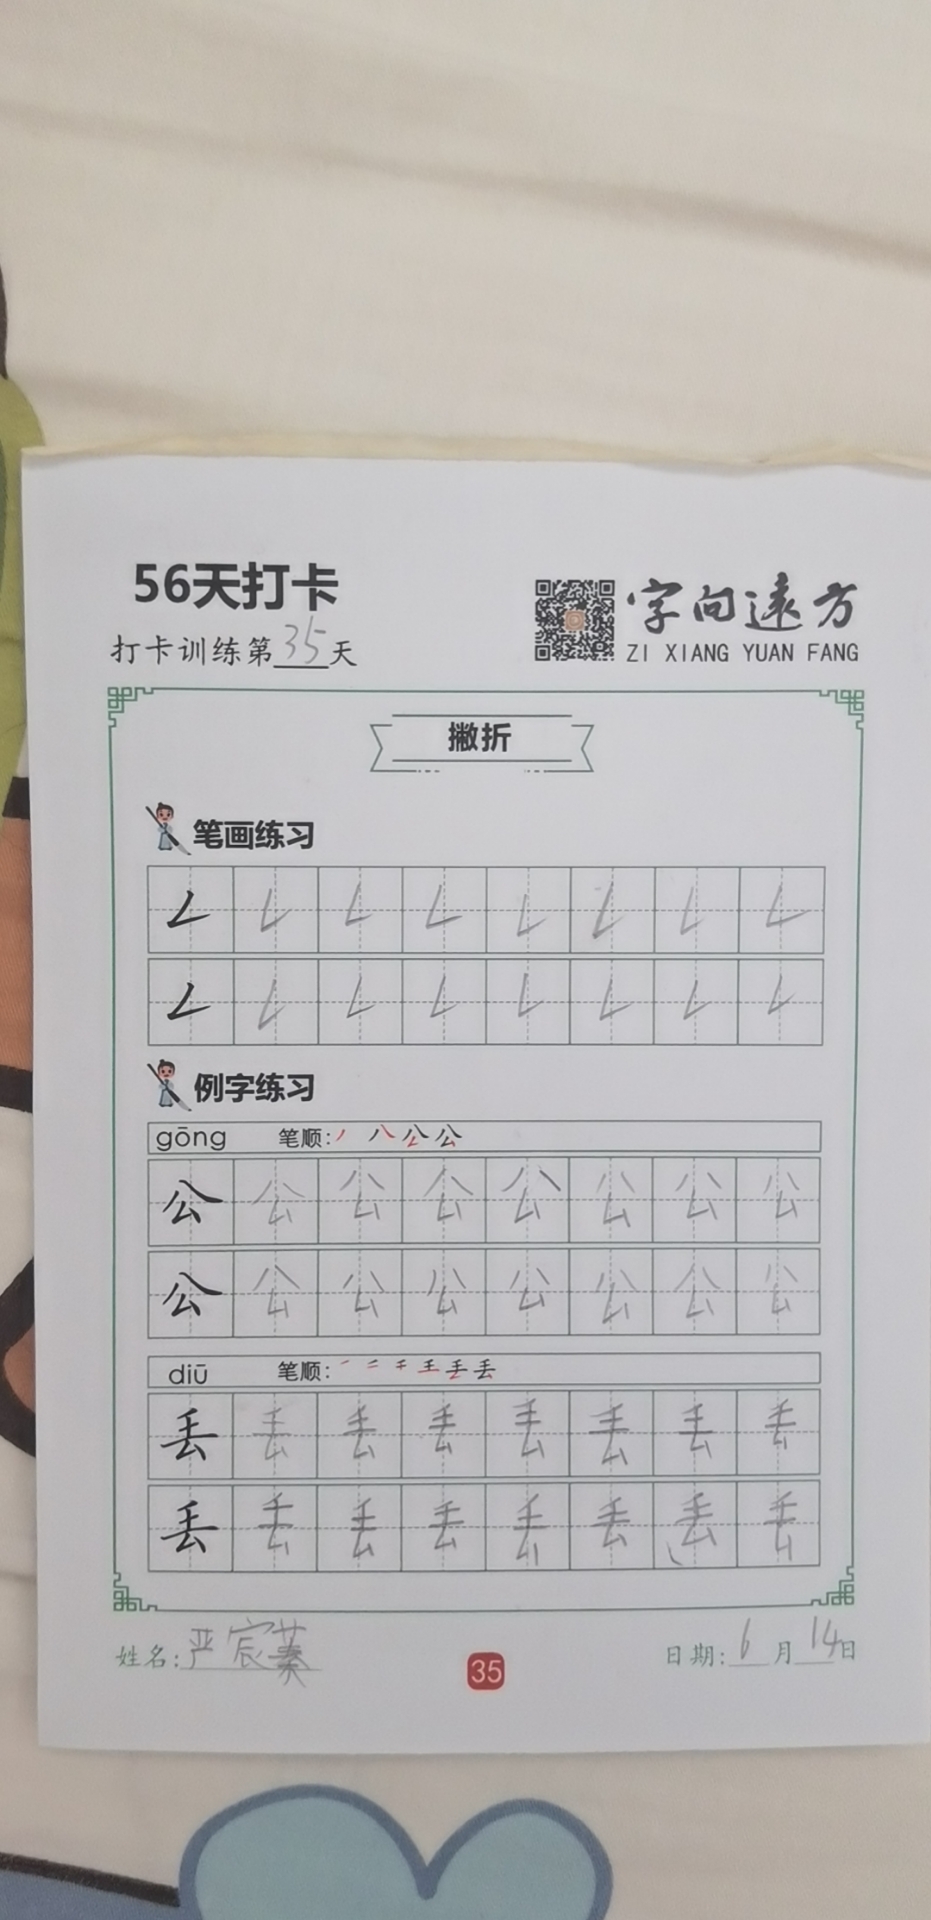 56天打卡
字向远方
打卡训练第35天
ZI XIANG YUAN FANG
撇折
笔画练习
例字练习
gōng 笔顺:
公 公 公 公 公 公 公 公
公 公 公 公 公 公 公 公
diū 笔顺:
丢 丢 丢 丢 丢 丢 丢 丢
丢 丢 丢 丢 丢 丢 丢 丢
姓名:严宸蓁
35
日期:6月14日